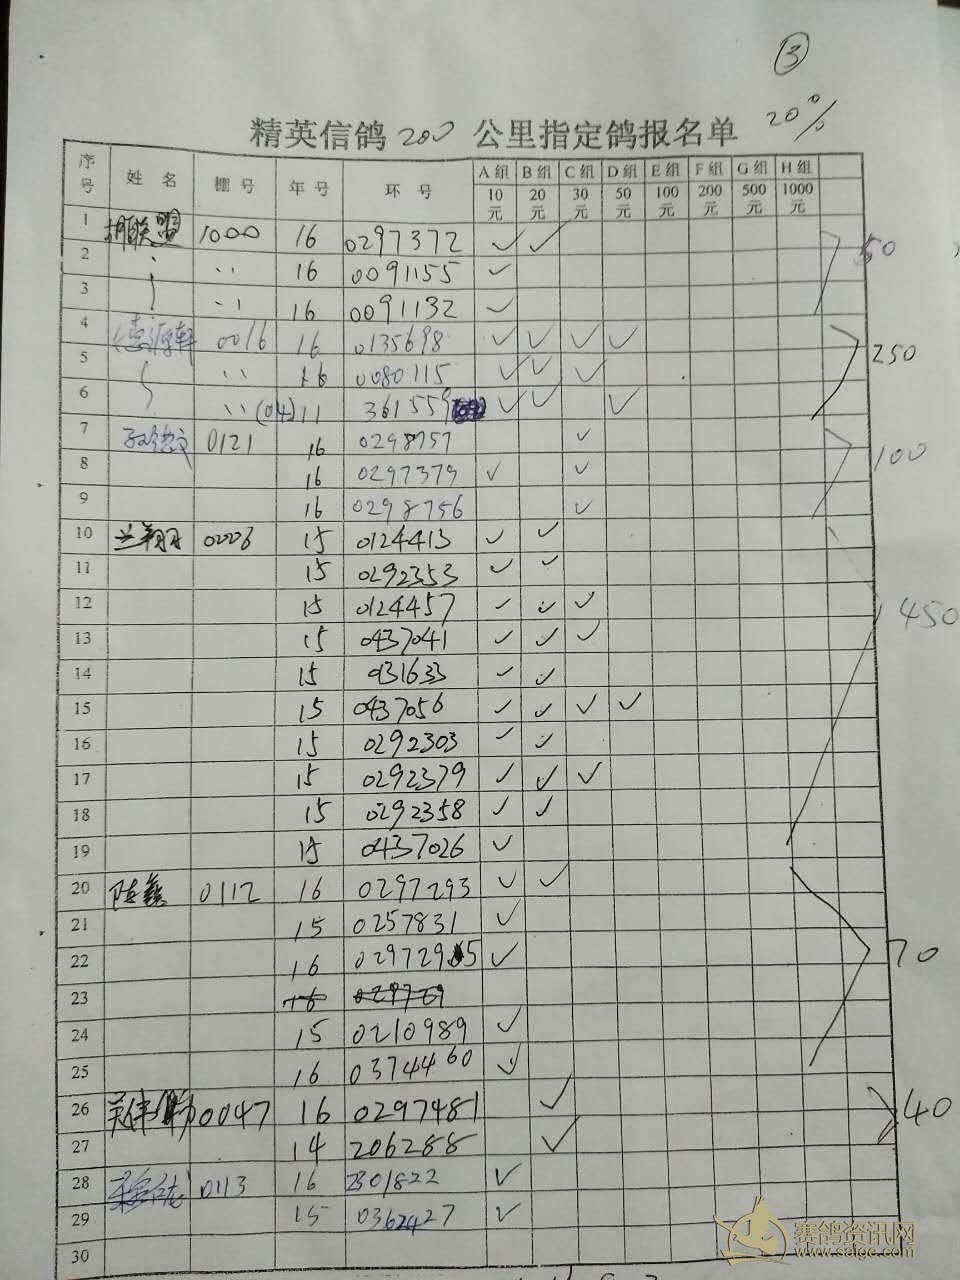 ③
20%
精英信鸽 200 公里指定鸽报名单
序号 姓 名 棚 号 年 号 环 号 A 组 10 元 B 组 20 元 C 组 30 元 D 组 50 元 E 组 100 元 F 组 200 元 G 组 500 元 H 组 1000 元
1 胡联盟 1000 16 0297372 ✓ ✓
2 〃 16 0091155 ✓
3 〃 16 0091132 ✓
50
4 德源轩 0016 16 0135698 ✓ ✓ ✓ ✓
5 〃 16 0080115 ✓ ✓ ✓
250
6 〃 (04) 11 361559 ✓ ✓ ✓
7 0121 16 0298757 ✓
8 16 0297379 ✓ ✓
100
9 16 0298756 ✓
10 兰翔 0006 15 0124413 ✓ ✓
11 15 0292353 ✓ ✓
12 15 0124457 ✓ ✓ ✓
450
13 15 0437041 ✓ ✓ ✓
14 15 0131633 ✓ ✓
15 15 0437056 ✓ ✓ ✓ ✓
16 15 0292303 ✓ ✓
17 15 0292379 ✓ ✓ ✓
18 15 0292358 ✓ ✓
19 15 0437026 ✓
20 陈鑫 0112 16 0297293 ✓ ✓
21 15 0257831 ✓
22 16 02972965 ✓
70
23 16 029729
24 15 0210989 ✓
25 16 0374460 ✓
26 0047 16 0297481 ✓
40
27 14 206288 ✓
28 0113 16 2301822 ✓
29 15 0362427 ✓
30
赛鸽资讯网
www.saige.com